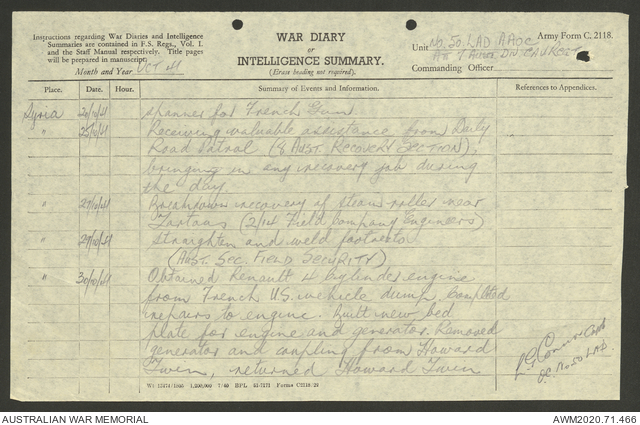 Instructions regarding War Diaries and Intelligence
Summaries are contained in F.S. Regs., Vol. I.
and the Staff Manual respectively. Title pages
will be prepared in manuscript.
Month and Year OCT 41
WAR DIARY
or
INTELLIGENCE SUMMARY.
(Erase heading not required).
Army Form C. 2118.
Unit No. 50. LAD AAOC
Att 7 Aust. DIV. CAV REGT
Commanding Officer
Place. Date. Hour. Summary of Events and Information. References to Appendices.
Syria spanner for French Gun.
" 25/10/41 Receiving valuable assistance from Daily
Road Patrol (8 AUST. RECOVERY SECTION),
bringing in any recovery job during
the day.
" 27/10/41 Breakdown recovery of steam roller near
Tartaus (2/14 Field Company Engineers)
" 29/10/41 Straighten and weld
(AUST. SEC. FIELD SECURITY)
" 30/10/41 Obtained Renault 4 Cylinder engine
from French U.S. vehicle dump, Completed
repairs to engine. Built new bed
plate for engine and generator. Removed
generator and coupling from Howard
Twin, returned Howard Twin
OC. No 50 LAD.
AUSTRALIAN WAR MEMORIAL
AWM2020.71.466